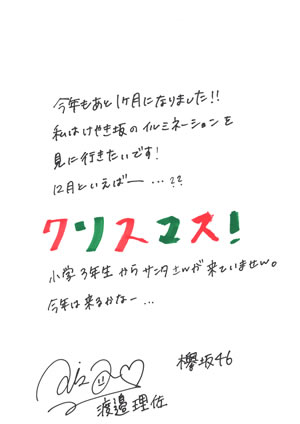 今年もあと1ヶ月になりました!!
私はけやき坂のイルミネーションを
見に行きたいです!
12月といえばー …??
クリスマス!
小学3年生からサンタさんが来ていません。
今年は来るかなー…
欅坂46
渡邉理佐